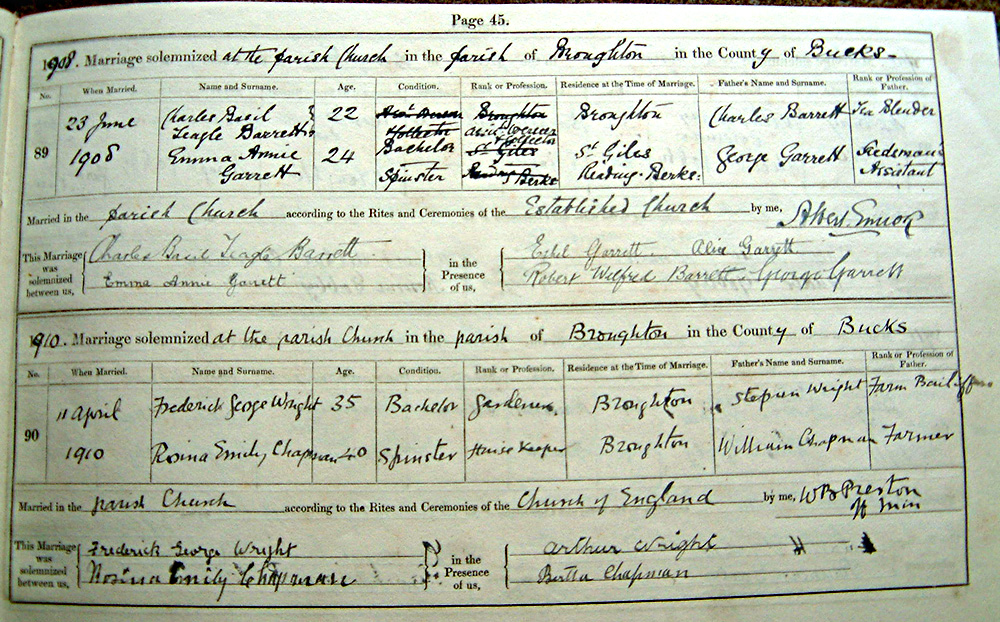 Page 45.
1908. Marriage solemnized at the parish Church in the parish of Broughton in the County of Bucks
No. When Married. Name and Surname. Age. Condition. Rank or Profession. Residence at the Time of Marriage. Father's Name and Surname. Rank or Profession of Father.
89
23 June Charles Basil Teagle Barrett 22 Bachelor Broughton Charles Barrett Tea Blender
1908 Emma Annie Garrett 24 Spinster St Giles Reading. Berks. George Garrett Assistant
Married in the parish Church according to the Rites and Ceremonies of the Established Church by me, Albert
This Marriage was solemnized between us, Charles Basil Teagle Barrett in the Presence of us, Ethel Garrett Alice Garrett
Emma Annie Garrett Robert Wilfred Barrett George Garrett
1910. Marriage solemnized at the parish Church in the parish of Broughton in the County of Bucks
No. When Married. Name and Surname. Age. Condition. Rank or Profession. Residence at the Time of Marriage. Father's Name and Surname. Rank or Profession of Father.
90
11 April Frederick George Wright 35 Bachelor Gardener Broughton Stephen Wright Farm Bailiff
1910 Rosina Emily Chapman 40 Spinster House Keeper Broughton William Chapman Farmer
Married in the parish Church according to the Rites and Ceremonies of the Church of England by me, W B Preston
Off Min
This Marriage was solemnized between us, Frederick George Wright in the Presence of us, Arthur Wright
Rosina Emily Chapman Bertha Chapman